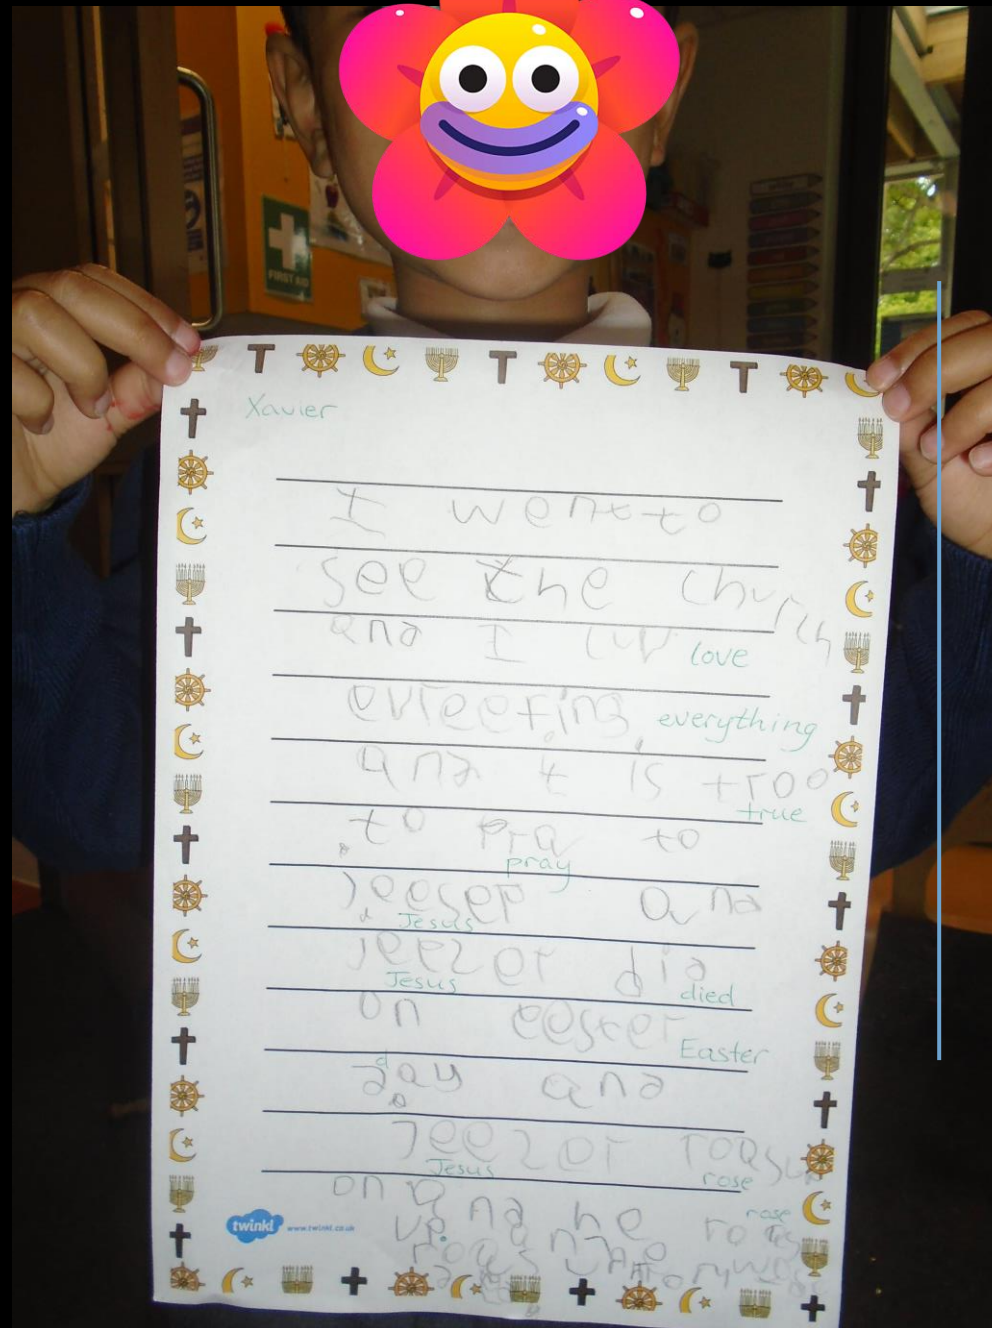 FIRST AID
Xavier
I went to
see the church
and I luv love
evreefing everything
and t is troo
true
to pra to
pray
jeeser and
Jesus
jeezer did
Jesus died
on eester
Easter
day and
d
jeezer
Jesus rose
on and he
rose
up.
twinkl www.twinkl.co.uk